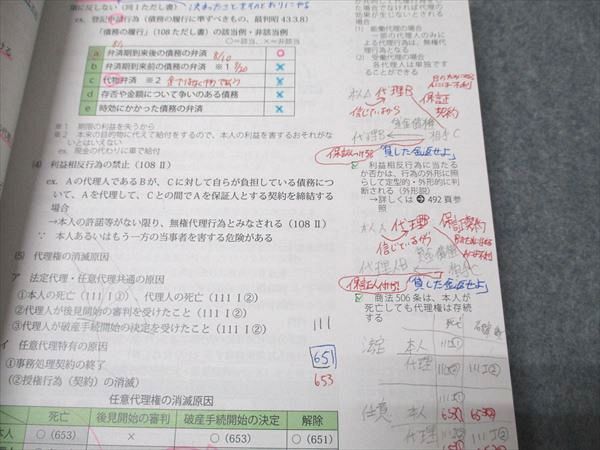 業に反しない（同Ⅰただし書）
ex. 登記申請行為（債務の履行に準ずべきもの、最判昭 43.3.8）
「債務の履行」（108 ただし書）の該当例・非該当例
○＝該当、×＝非該当
a 弁済期到来後の債務の弁済 ○
b 弁済期到来前の債務の弁済 ※1 ×
c 代物弁済 ※2 ×
d 存否や金額について争のある債務 ×
e 時効にかかった債務の弁済 ×
※1 期限の利益を失うから
※2 本来の目的物に代えて給付をするので、本人の利益を害するおそれがな
いとはいえない
ex. 現金の代わりに車で給付
(4) 利益相反行為の禁止（108 Ⅱ）
ex. Aの代理人であるBが、Cに対して自らが負担している債務につ
いて、Aを代理して、Cとの間でAを保証人とする契約を締結する
場合
→本人の許諾等がない限り、無権代理行為とみなされる（108 Ⅱ）
∵ 本人あるいはもう一方の当事者を害する危険がある
(5) 代理権の消滅原因
ア 法定代理・任意代理共通の原因
①本人の死亡（111 Ⅰ①）、代理人の死亡（111 Ⅰ②）
②代理人が後見開始の審判を受けたこと（111 Ⅰ②）
③代理人が破産手続開始の決定を受けたこと（111 Ⅰ②） 111
イ 任意代理特有の原因
①事務処理契約の終了 651
(②授権行為（契約）の消滅) 653
任意代理権の消滅原因
死亡 後見開始の審判 破産手続開始の決定 解除
本人 ○（653） × ○（653） ○（651）
場合でなければ代理行為
の効力が生じないとされ
(1) 能働代理の場合
一部の代理人のみに
よる代理行為は、無権代
理行為となる
(2) 受働代理の場合
各代理人は単独です
ることができる
本人A 代理B
信じているから
保証
契約
代理B
相手C
「貸した金返せよ」
利益相反行為に当た
るか否かは、行為の外形に照
らして定型的・外形的に判
断される（外形説）
→詳しくは 492 頁参
照
本人A 代理B 保証契約
信じているから
「貸した金返せよ」
商法 506 条は、本人が
死亡しても代理権は存続
する
死亡
法定 本人 111Ⅰ①
代理 111Ⅰ② 111Ⅰ②
任意 本人 653
代理 111Ⅰ②